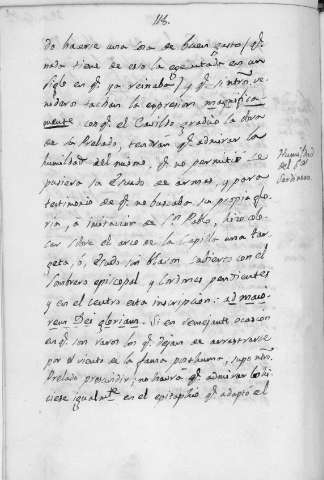 118.
do haverse una cosa de buen gusto / q.e
nada tiene de eso la executada en un
siglo en q.e ya reinaba / y q.e si ntros. ve-
nideros tachan la expresion magnifica-
mente con q.e el Cavildo graduò la obra
de su Prelado, tendran q.e admirar la
humildad del mismo, q.e no permitiò se
pusiera su Escudo de armas, y para
testimonio de q.e no buscaba su propia glo-
ria, à imitacion de S.n Pablo, hizo colo-
car sobre el arco de la Capilla una tar-
geta, ò, Escudo sin blason cubierto con el
Sombrero episcopal y cordones pendientes
y en el centro esta inscripcion: ad maio-
rem Dei gloriam. Si en semejante ocasion
en q.e son raros los q.e dejan de arrastrarse
por el viento de la fama posthuma, supo ntro.
Prelado prescindir, no habrà q.e admirar lo hi-
ciese igualm.te en el epitaphio q.e adaptò el
Humildad
del S.or